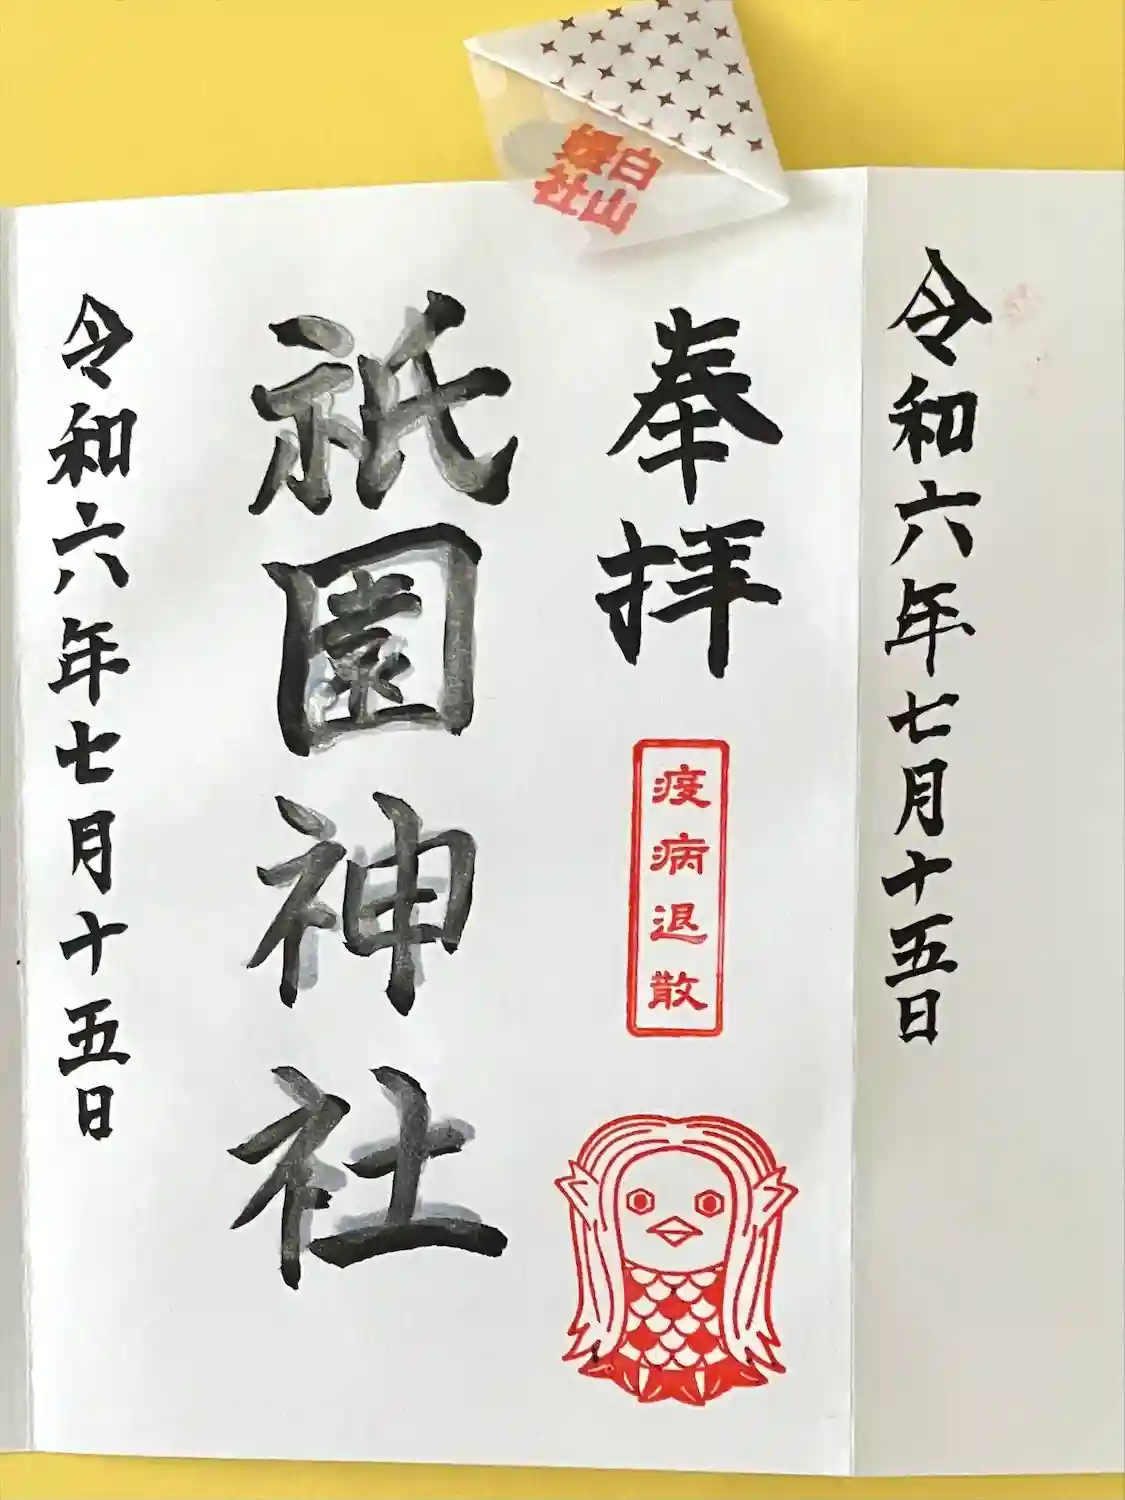 白山
媛社
令和六年七月十五日
奉拝
疫病退散
祇園神社
令和六年七月十五日